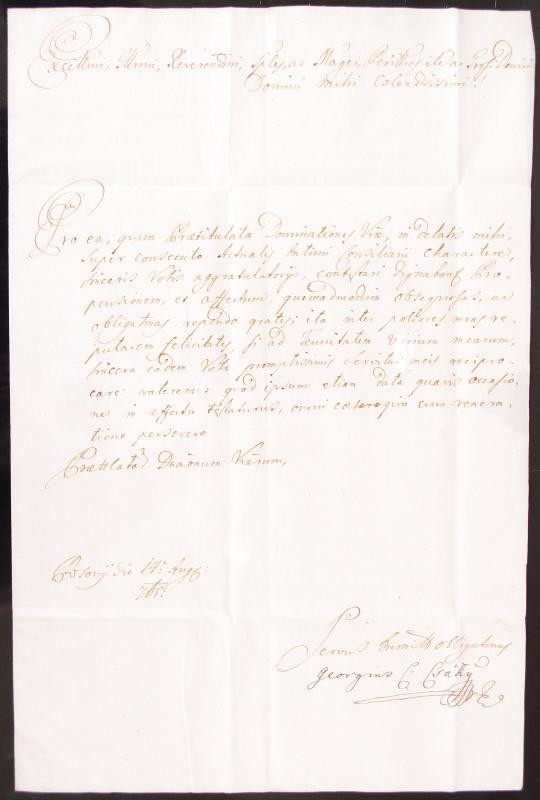 Excellmi, Illmi, Reverendmi, Sples, ac Magci, Periltres ite ac Dnni
Domini mihi Colendissimi.
Pro ea, quam Praetitulatae Dominationes Vrae, in delatis mihi,
super consecuto Actualis Intimi Consiliarii charactere,
sinceris Votis aggratulatoriis, contestari dignabant Pro-
pensionem, et affectum, quemadmodum obsequiosas, ac
obligatmas rependo grates; ita inter potiores meas re-
putarem felicitates si ad Tenuitatem virium mearum,
sincera eadem Vota promptissimis Servitiis meis recipro-
care valerem: quod ipsum etiam data quavis occasio-
ne in effectu testaturus, omni caeteroquin cum venera-
tione persevero
Praettlatar Dnaonum Vrarum,
Posonij die 14. Aug:
Servus humill obligatmus
Georgius C. Csáky